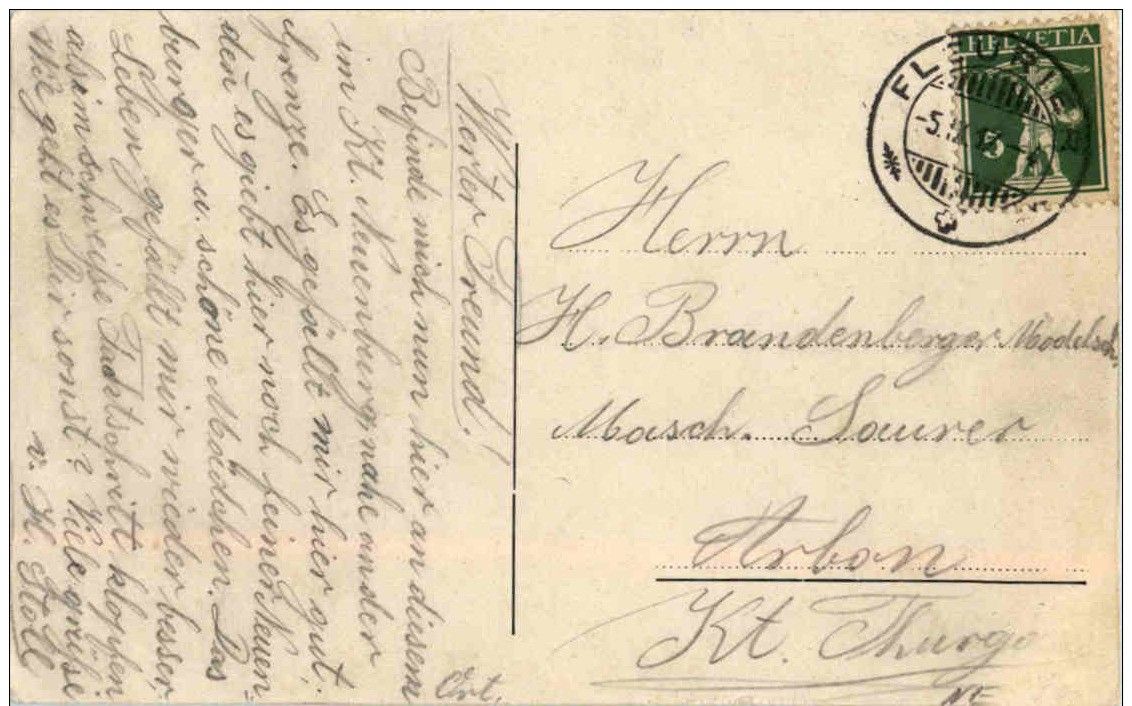 HELVETIA
FLEURIER
-5.IX.12.-4
5
Herrn
H. Brandenberger Modelsch.
Masch. Saurer
Arbon
Kt. Thurgo
NE
Werter Freund!
Befinde mich nun hier an dissem
Ort,
im Kt. Neuenburg, nahe an der
Grenze. Es gefällt mir hier gut,
den es giebt hier noch feiner Neuen=
burger u. schöne Mädchen. Das
Leben gefällt mir wieder besser,
als im schneisse Taktschritt klopfen
Wie geht es Dir sonst? Viele grüsse
v. H. Stoll